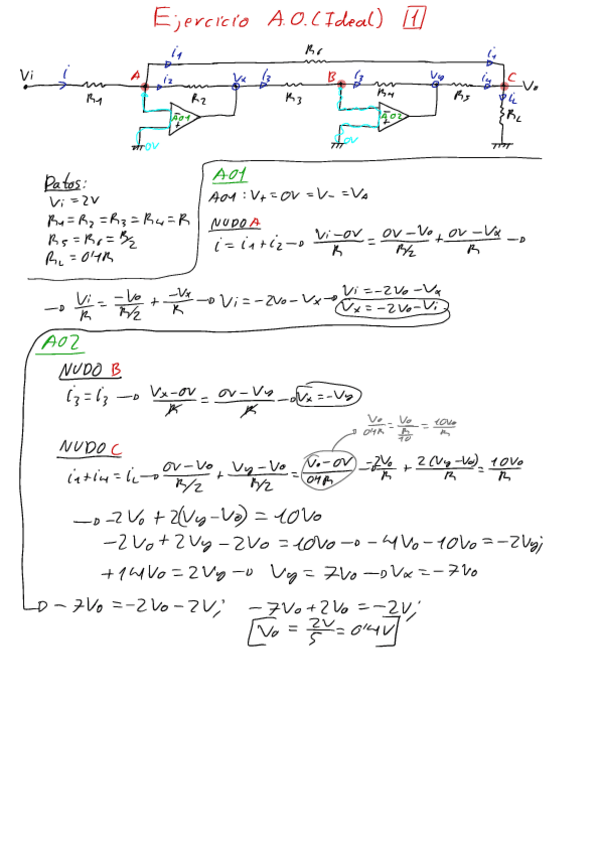 Ejercicio A.O. (Ideal) 1
i1 R6 i1
Vi i A i2 Vx i3 B i3 Vy i4 C Vo
R1 R2 R3 R4 R5 iL
AO1 AO2 RL
0V 0V
Datos:
Vi = 2V
R1=R2=R3=R4=R
R5=R6=R/2
RL=0'1R
AO1
AO1: V+=0V=V-=VA
NUDO A
i=i1+i2→ Vi-0V/R = 0V-Vo/R/2 + 0V-Vx/R →
→ Vi/R = -Vo/R/2 + -Vx/R → Vi=-2Vo-Vx → Vi=-2Vo-Vx
Vx=-2Vo-Vi
AO2
NUDO B
i3=i3 → Vx-0V/R = 0V-Vy/R → Vx=-Vy
Vo/0'1R = Vo/R/10 = 10Vo/R
NUDO C
i1+i4=iL→ 0V-Vo/R/2 + Vy-Vo/R/2 = Vo-0V/0'1R → -2Vo/R + 2(Vy-Vo)/R = 10Vo/R
→ -2Vo + 2(Vy-Vo) = 10Vo
-2Vo+2Vy-2Vo=10Vo → -4Vo-10Vo=-2Vy;
+14Vo=2Vy → Vy=7Vo → Vx=-7Vo
→ -7Vo=-2Vo-2V; -7Vo+2Vo=-2V;
[Vo = 2V/5 = 0'4V]